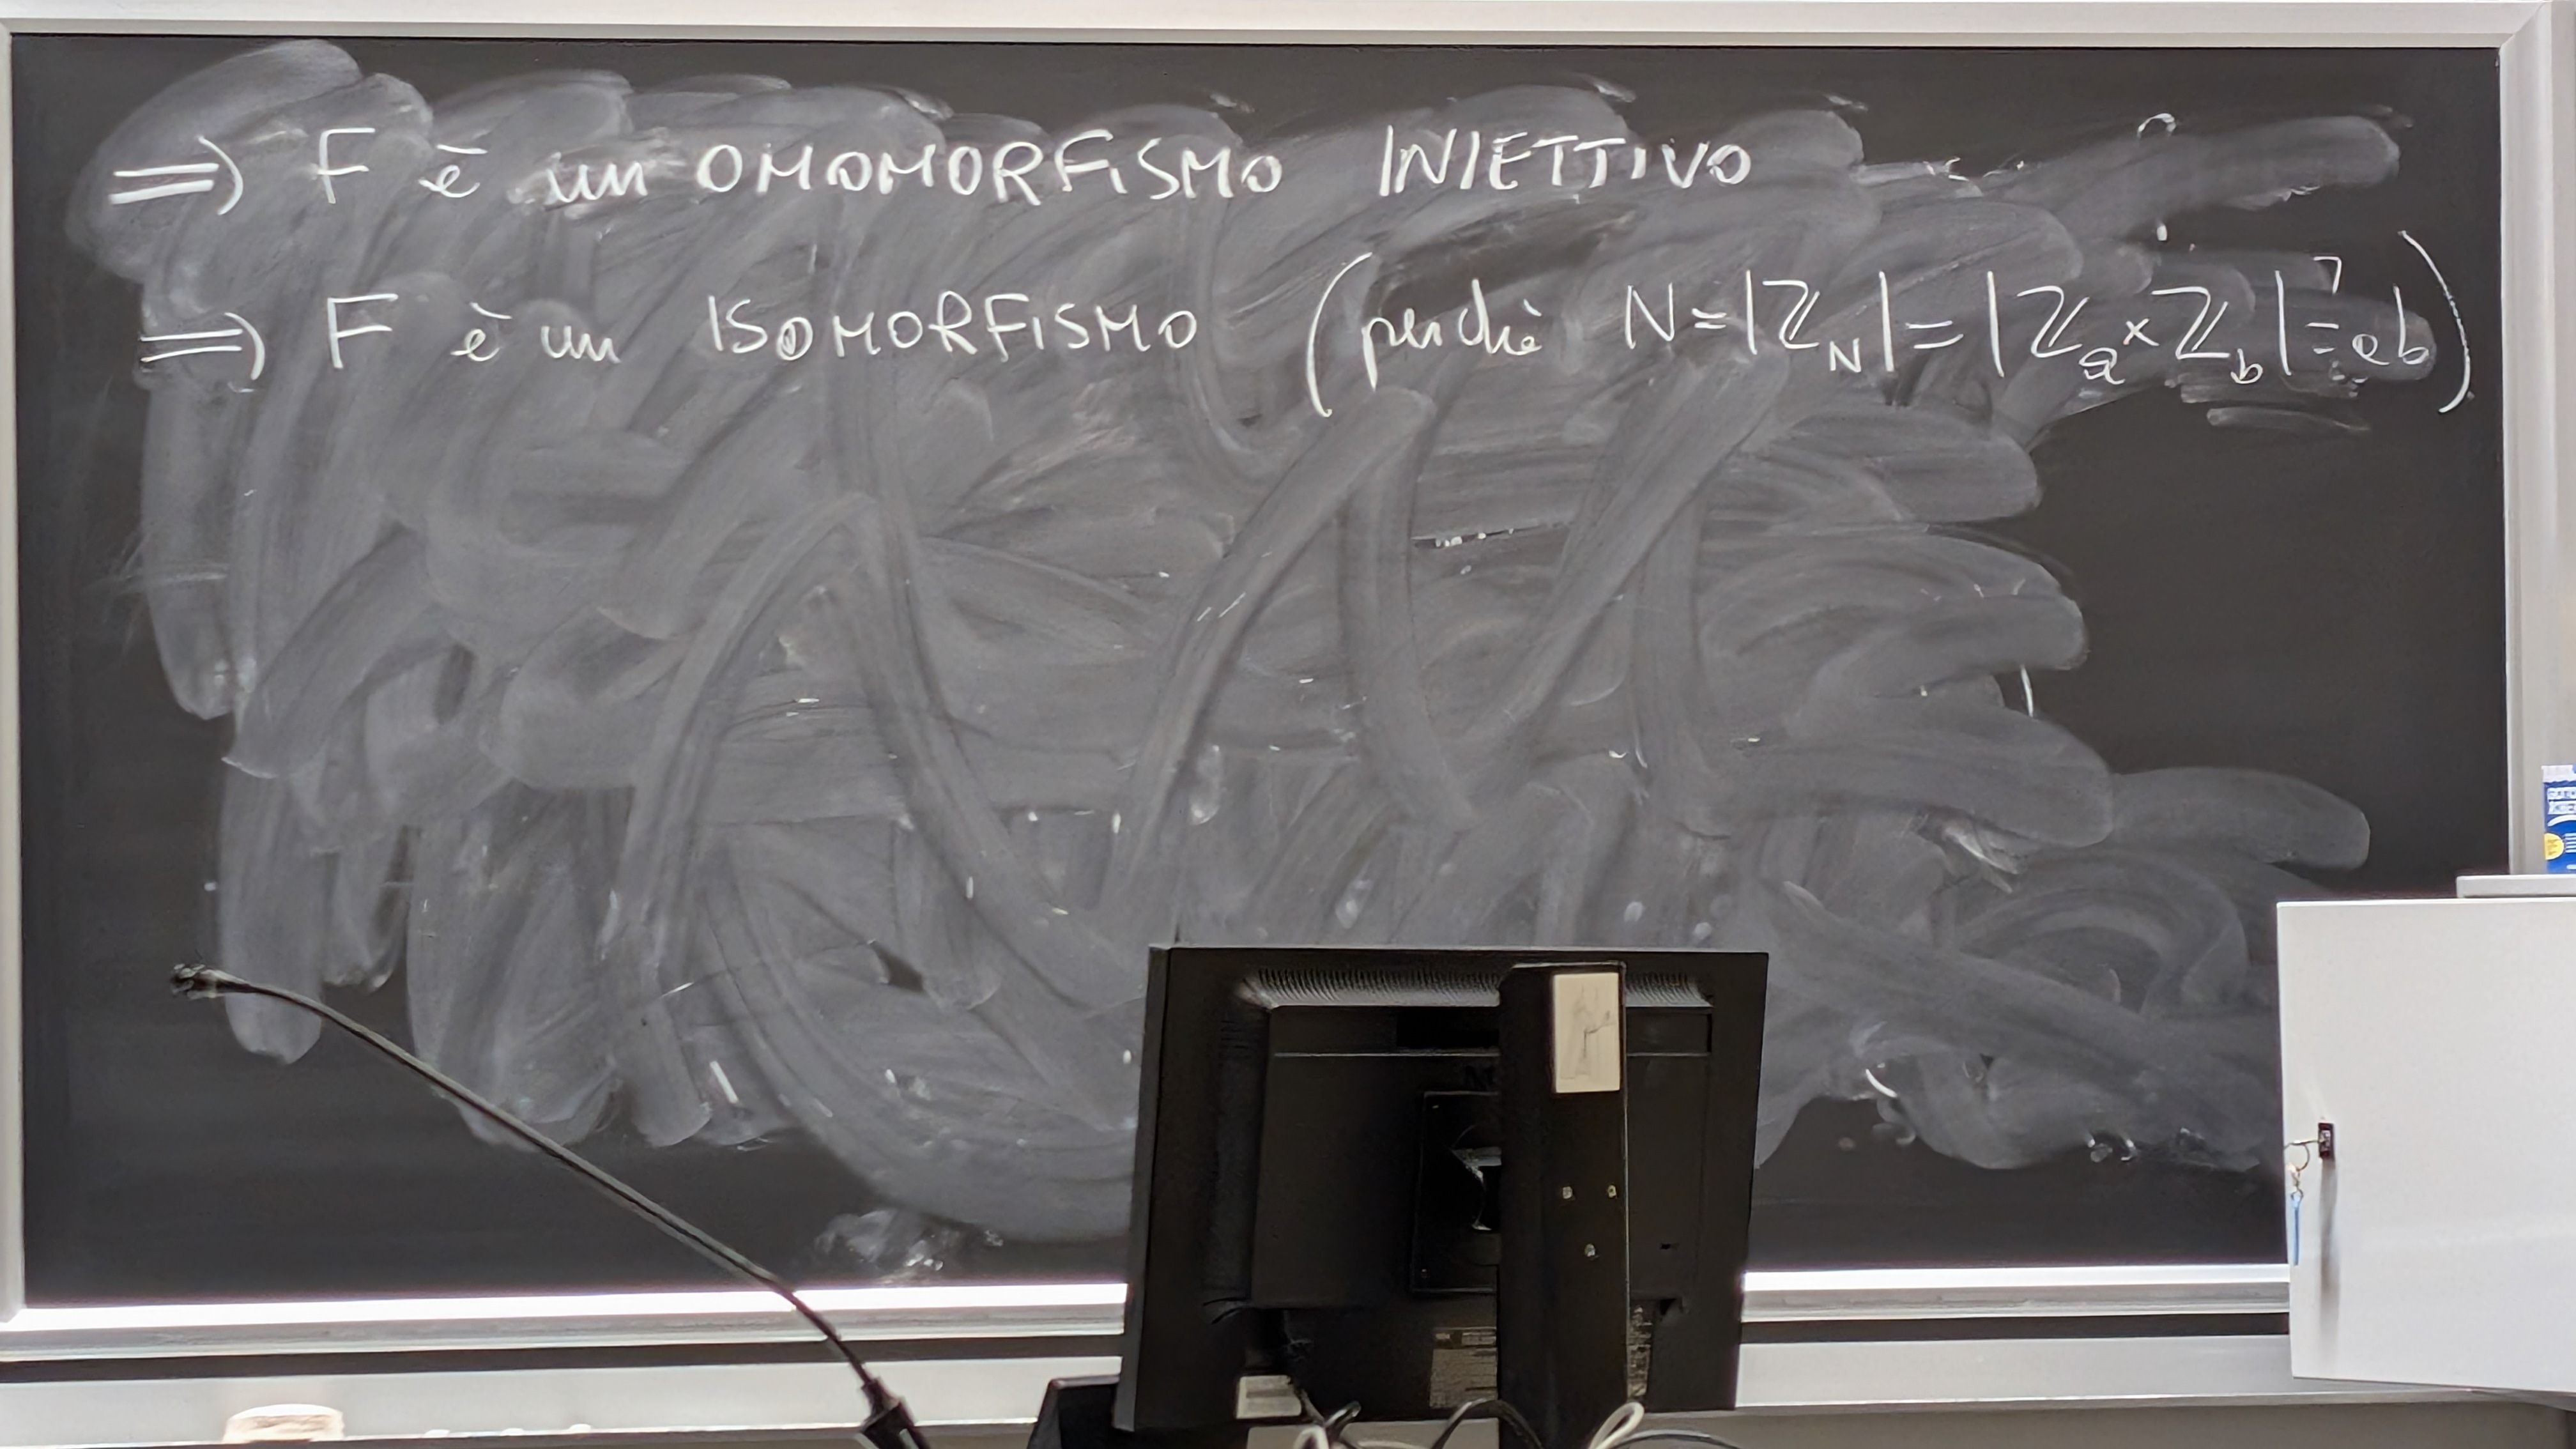 ⇒ F è un OMOMORFISMO INIETTIVO
⇒ F è un ISOMORFISMO (perché N = |ℤ_N| = |ℤ_a × ℤ_b| = ab)